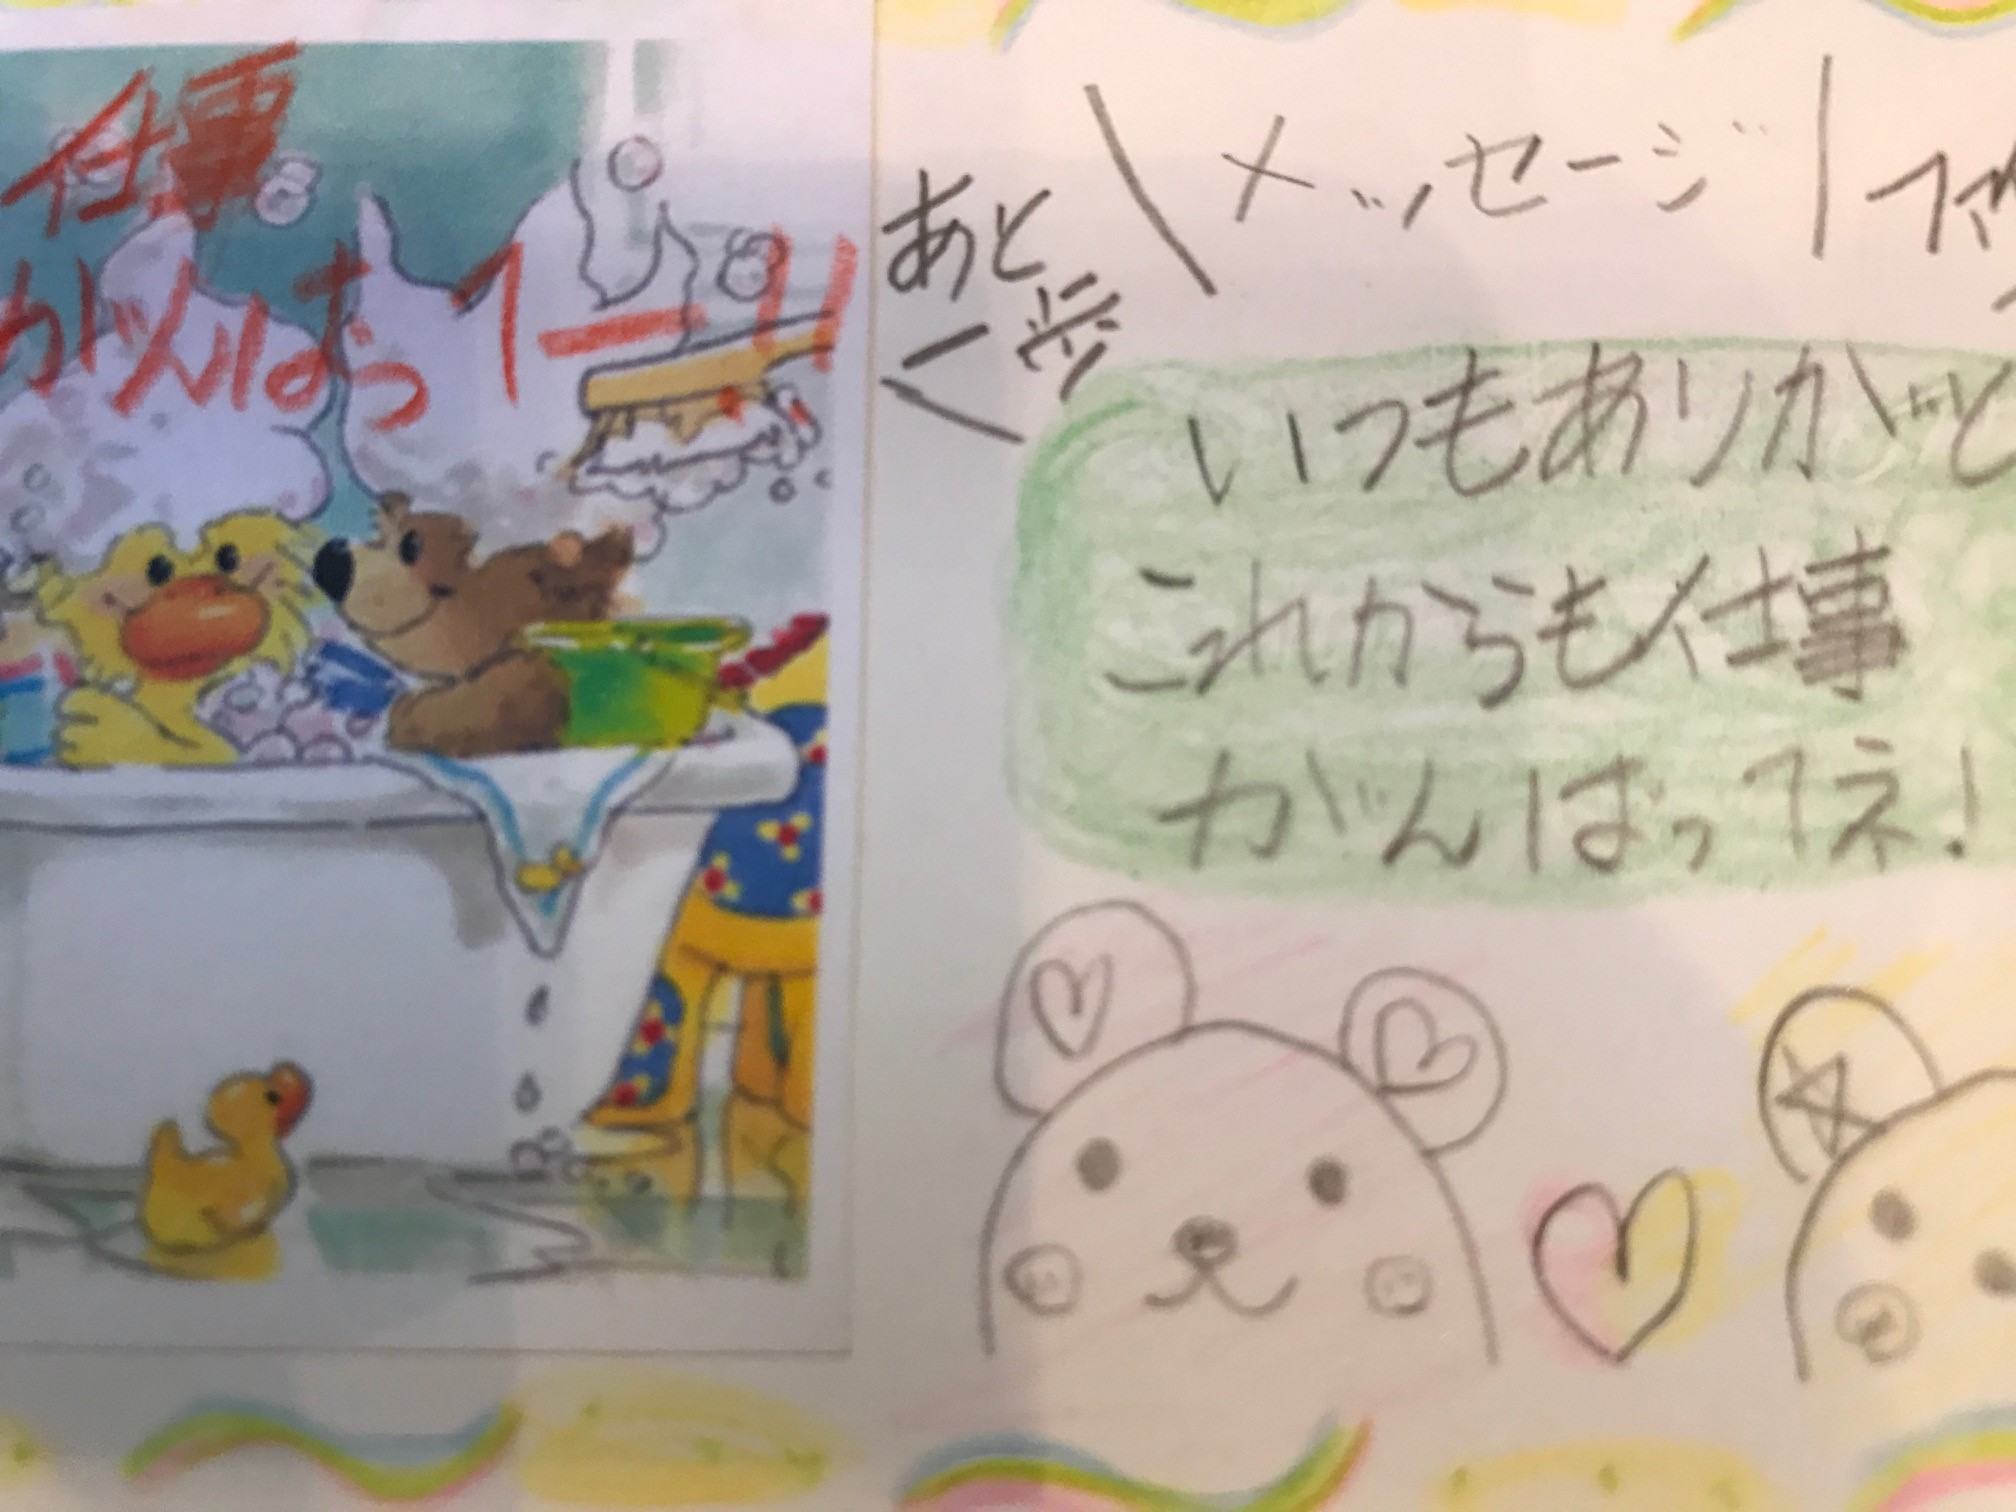 仕事
がんばってー!!
あと
メッセージ
いつもありがと
これからも仕事
がんばってネ!